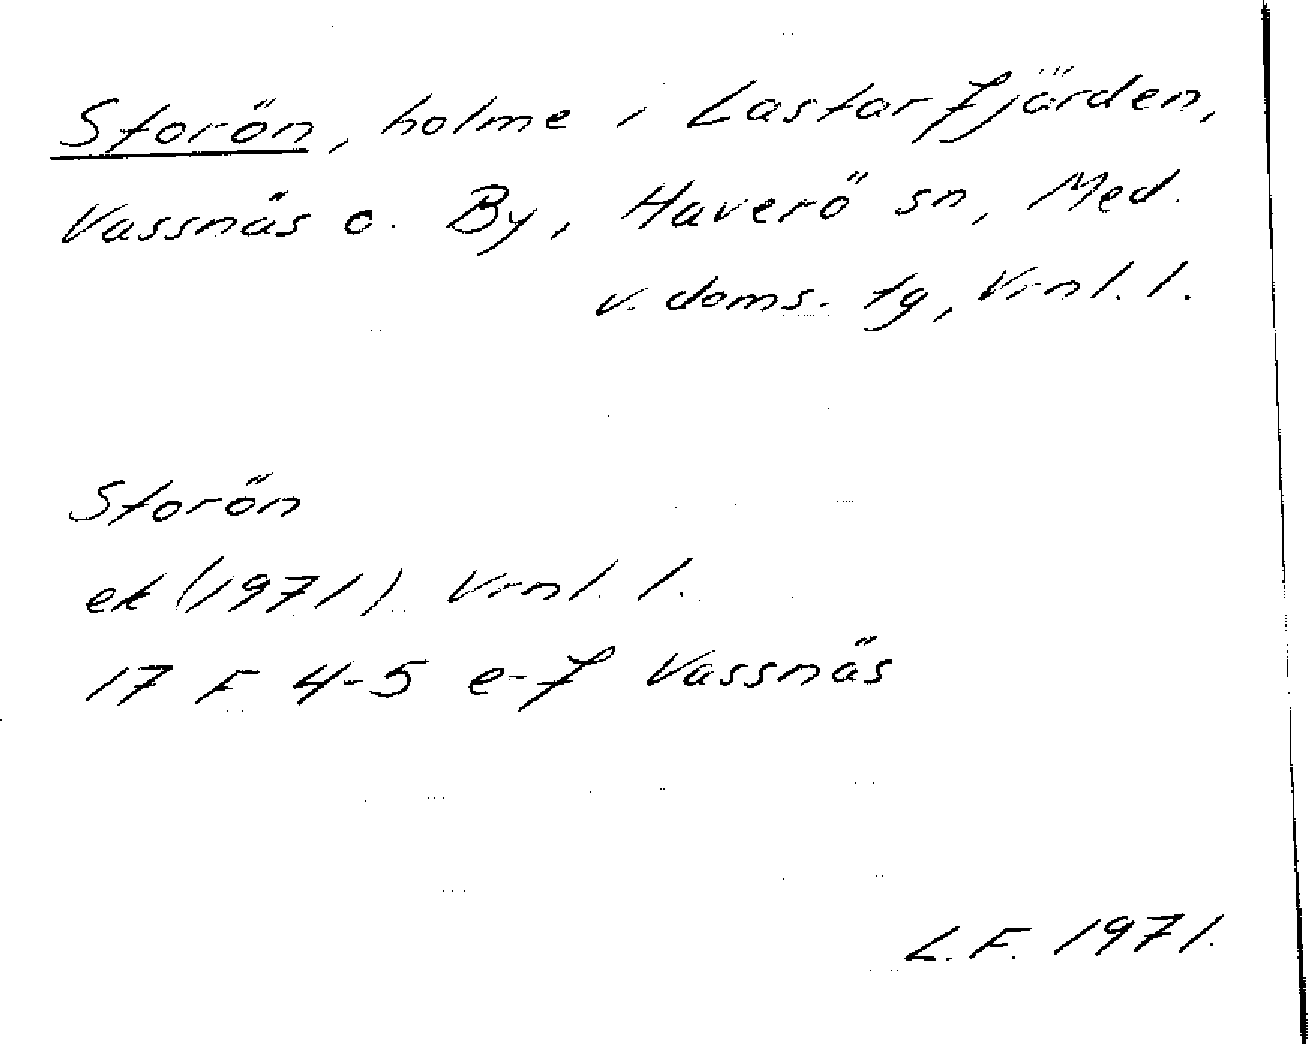 Storön, holme i Lastarfjärden,
Vassnäs o. By, Haverö sn, Med.
v. doms. tg, Vrnl. l.
Storön
ek (1971) Vrnl. l.
17 F 4-5 e-f Vassnäs
L.F. 1971.